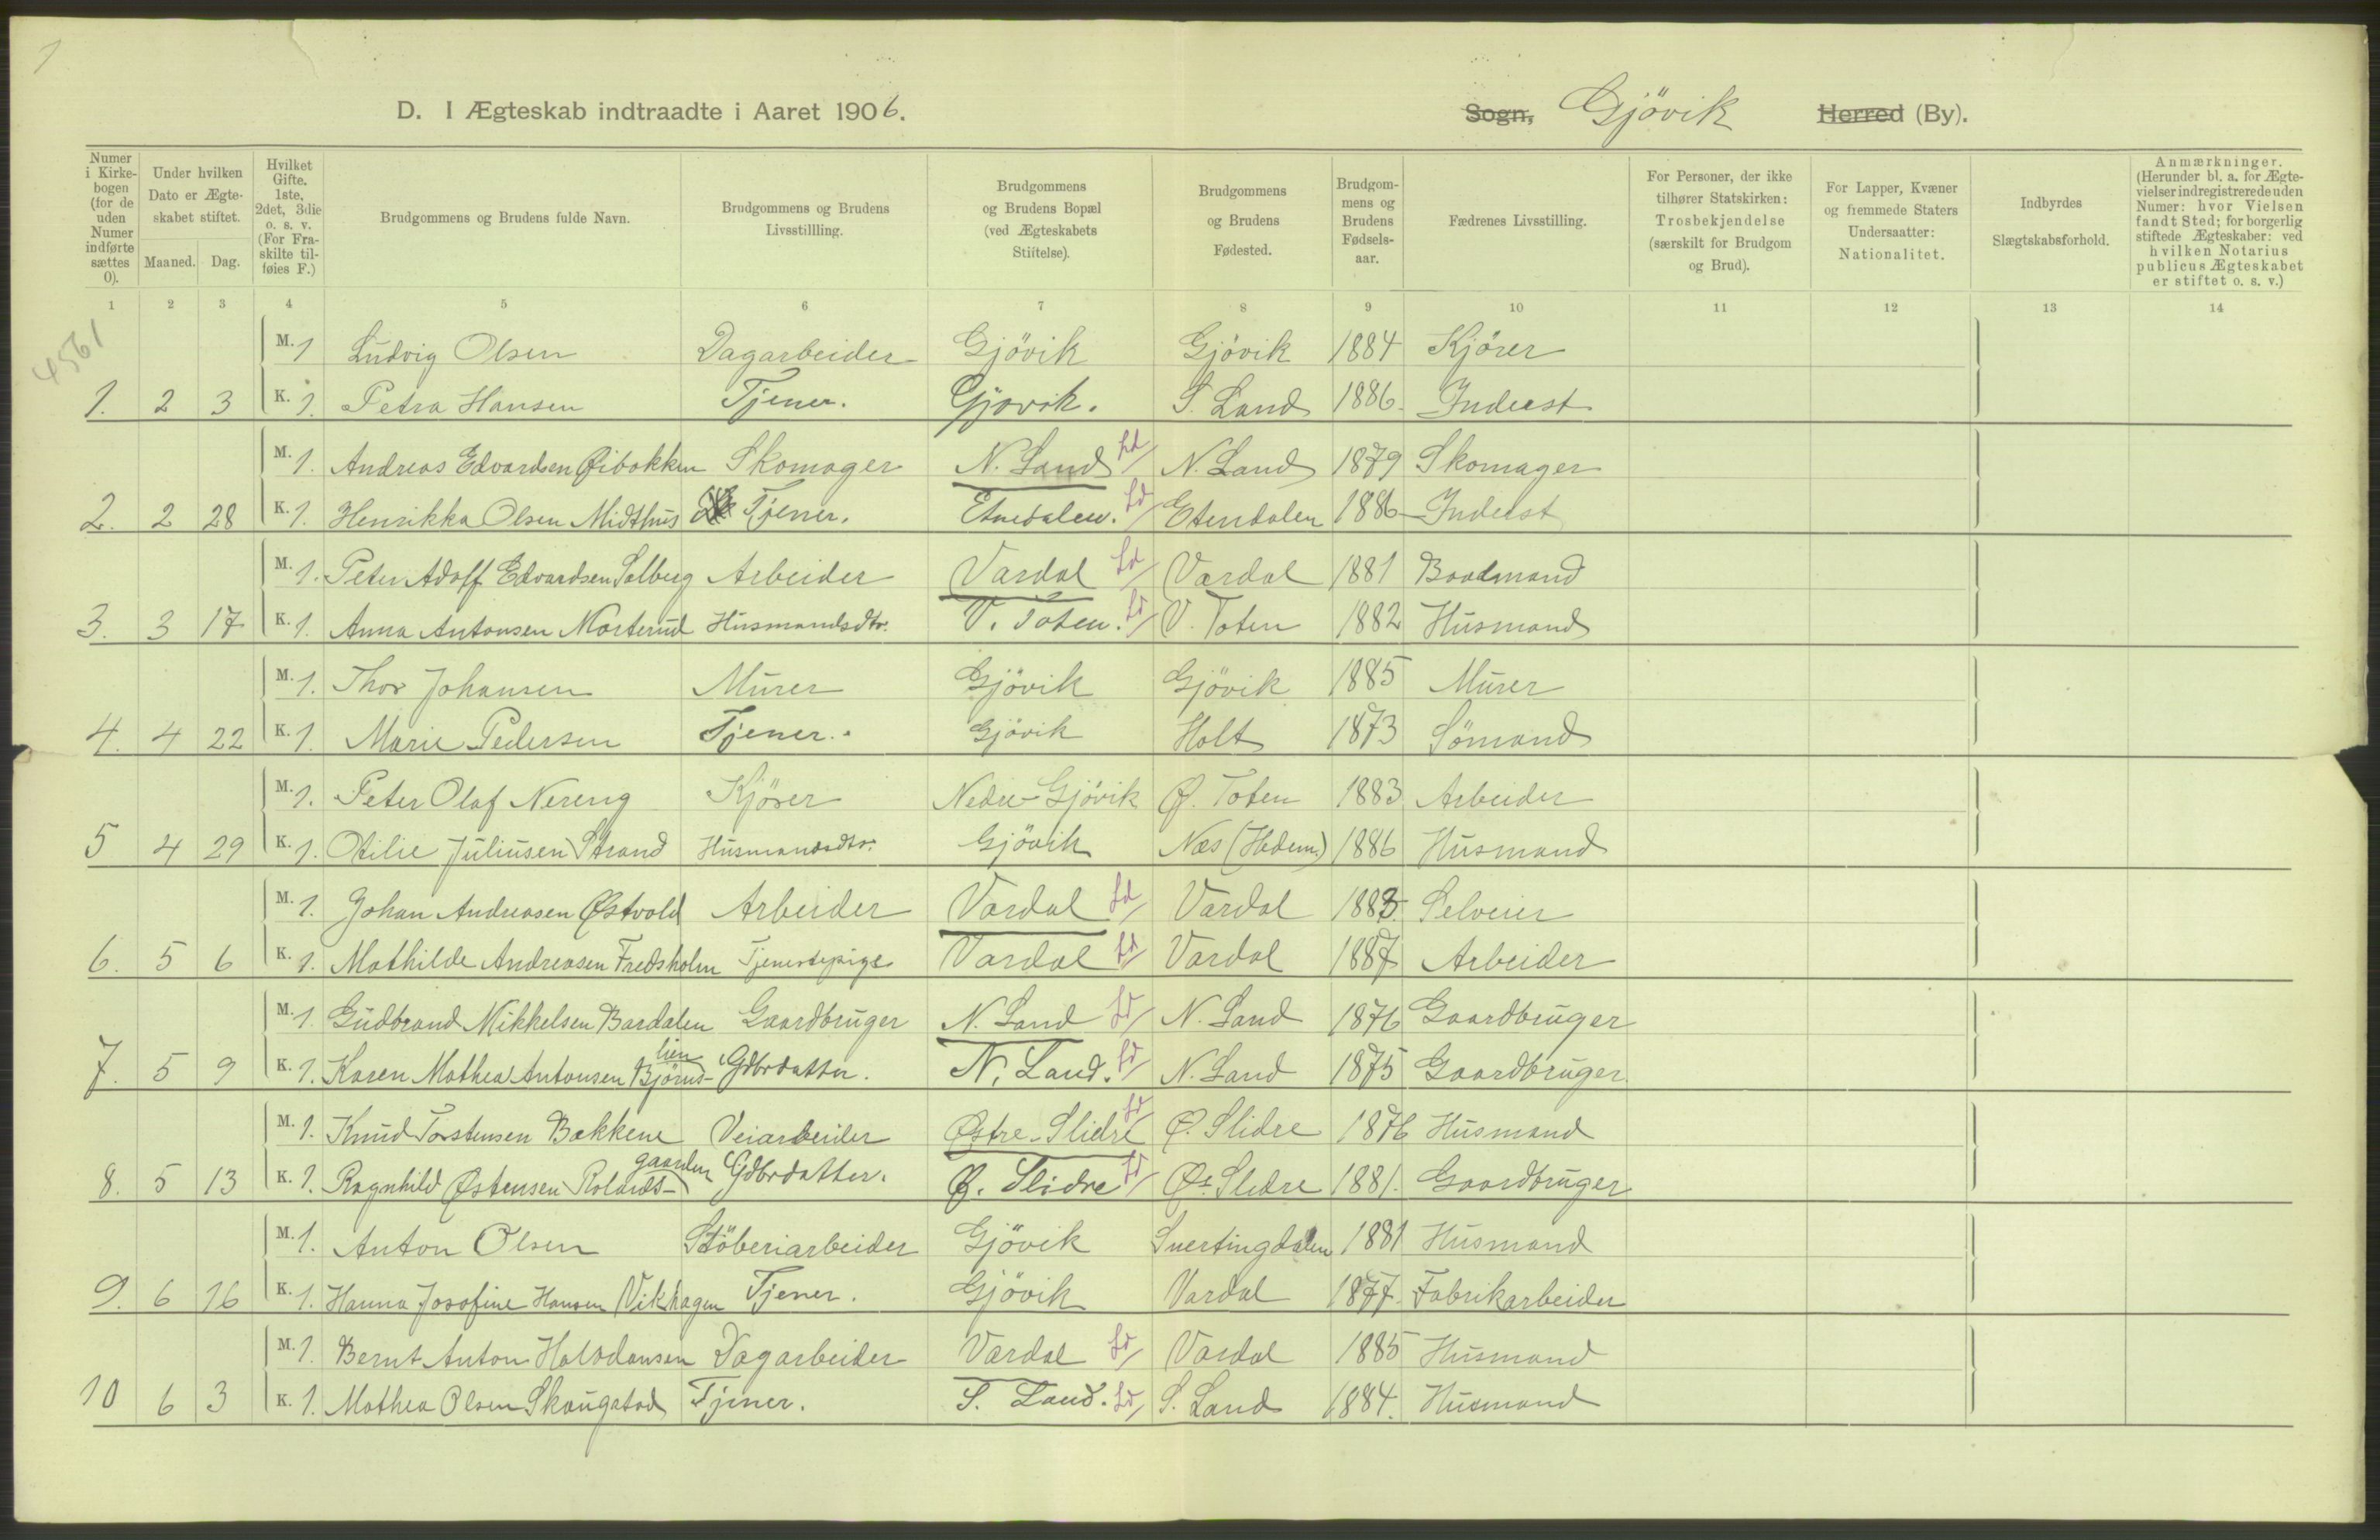 1
D. I Ægteskab indtraadte i Aaret 1906. Sogn, Gjövik Herred (By).
Numer i Kirkebogen (for de uden Numer indførte sættes 0).
Under hvilken Dato er Ægteskabet stiftet.
Maaned. Dag.
Hvilket Gifte. 1ste, 2det, 3die o. s. v. (For Fraskilte tilføies F.)
Brudgommens og Brudens fulde Navn.
Brudgommens og Brudens Livsstillling.
Brudgommens og Brudens Bopæl (ved Ægteskabets Stiftelse).
Brudgommens og Brudens Fødested.
Brudgommens og Brudens Fødselsaar.
Fædrenes Livsstilling.
For Personer, der ikke tilhører Statskirken: Trosbekjendelse (særskilt for Brudgom og Brud).
For Lapper, Kvæner og fremmede Staters Undersaatter: Nationalitet.
Indbyrdes Slægtskabsforhold.
Anmærkninger. (Herunder bl. a. for Ægtevielser indregistrerede uden Numer: hvor Vielsen fandt Sted; for borgerlig stiftede Ægteskaber: ved hvilken Notarius publicus Ægteskabet er stiftet o. s. v.)
1 2 3 4 5 6 7 8 9 10 11 12 13 14
4561
M. 1 Ludvig Olsen Dagarbeider Gjövik Gjövik 1884 Kjörer
1. 2 3 K. 1. Petra Hansen Tjener. Gjövik. S. Land 1886. Inderst
M. 1. Andreas Edvardsen Øibakken Skomager N. Land Ld N. Land 1879 Skomager
2. 2 28 K. 1. Henrikka Olsen Midthus Tjener. Etnedalen. Ld Etendalen 1886 Inderst
M. 1. Peter Adolf Edvardsen Solberg Arbeider Vardal Ld Vardal 1881 Baadmand
3. 3 17 K. 1. Anna Antonsen Morterud Husmandsdtr. V. Toten. Ld V. Toten 1882 Husmand
M. 1. Thor Johansen Murer Gjövik Gjövik 1885 Murer
4. 4 22 K. 1. Marie Pedersen Tjener. Gjövik Holt 1873 Sömand
M. 1. Peter Olaf Nereng Kjörer Nedre-Gjövik Ø. Toten 1883 Arbeider
5 4 29 K. 1. Otilie Juliusen Strand Husmandsdtr. Gjövik Næs (Hedem.) 1886 Husmand
M. 1. Johan Andreasen Østvold Arbeider Vardal Ld Vardal 1883 Selveier
6. 5 6 K. 1. Mathilde Andreasen Fredsholm Tjenestepige Vardal Ld Vardal 1887 Arbeider
M. 1. Gudbrand Mikkelsen Bardalen Gaardbruger N. Land Ld N. Land 1876 Gaardbruger
7. 5 9 K. 1. Karen Mathea Antonsen Bjørnslien Gdbrdatter. N. Land. Ld N. Land 1875 Gaardbruger
M. 1. Knud Torstensen Bakkene Veiarbeider Østre-Slidre Ld Ø. Slidre 1876 Husmand
8. 5 13 K. 1. Ragnhild Østensen Rolandsgaarden Gdbrdatter. Ø. Slidre Ld Øs. Slidre 1881. Gaardbruger
M. 1. Anton Olsen Stöberiarbeider Gjövik Snertingdalen 1881 Husmand
9. 6 16 K. 1. Hanna Josofine Hansen Vikhagen Tjener. Gjövik Vardal 1877. Fabrikarbeider
M. 1. Bernt Anton Halvdansen Dagarbeider Vardal Ld Vardal 1885 Husmand
10 6 3 K. 1. Mathea Olsen Skaugstad Tjener. S. Land. Ld S. Land 1884. Husmand